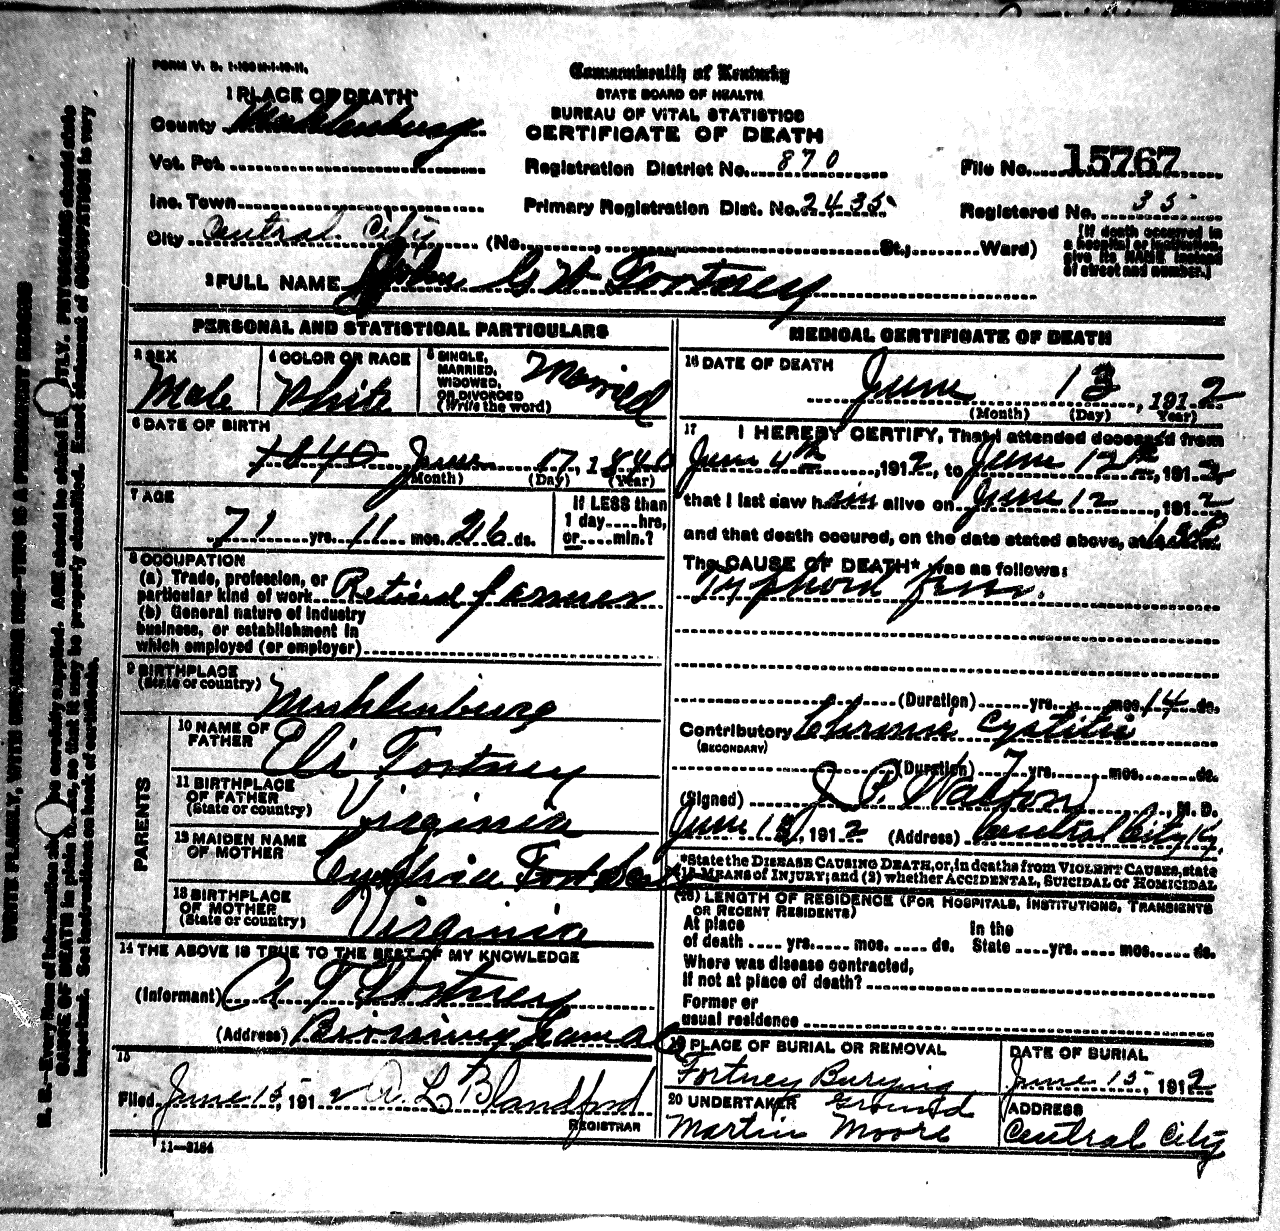 FORM V. S. 1-100M-1-10-11.
Commonwealth of Kentucky
STATE BOARD OF HEALTH
BUREAU OF VITAL STATISTICS
CERTIFICATE OF DEATH
1 PLACE OF DEATH
County Muhlenburg
Vot. Pct.
Inc. Town
City Central City (No. , St.; Ward)
Registration District No. 870
Primary Registration Dist. No. 2435
File No. 15767
Registered No. 35
(If death occurred in
a hospital or institution,
give its NAME instead
of street and number.)
2 FULL NAME John G W Fortney
PERSONAL AND STATISTICAL PARTICULARS
3 SEX
Male
4 COLOR OR RACE
White
5 SINGLE,
MARRIED,
WIDOWED,
OR DIVORCED
(Write the word)
Married
6 DATE OF BIRTH
1840 June 17, 1840
(Month) (Day) (Year)
7 AGE
71 yrs. 11 mos. 26 ds.
If LESS than
1 day....hrs,
or....min.?
8 OCCUPATION
(a) Trade, profession, or
particular kind of work Retired farmer
(b) General nature of industry
business, or establishment in
which employed (or employer)
9 BIRTHPLACE
(State or country)
Muhlenburg
PARENTS
10 NAME OF
FATHER
Eli Fortney
11 BIRTHPLACE
OF FATHER
(State or country)
Virginia
12 MAIDEN NAME
OF MOTHER
Cynthia
13 BIRTHPLACE
OF MOTHER
(State or country)
Virginia
14 THE ABOVE IS TRUE TO THE BEST OF MY KNOWLEDGE
(Informant) Fortney
(Address)
15
Filed June 15, 1912 A L Blandford
REGISTRAR
11—3184
MEDICAL CERTIFICATE OF DEATH
16 DATE OF DEATH
June 13, 1912
(Month) (Day) Year)
17 I HEREBY CERTIFY, That I attended deceased from
June 4th, 1912, to June 12th, 1912
that I last saw him alive on June 12, 1912
and that death occured, on the date stated above, at
The CAUSE OF DEATH* was as follows:
Typhoid fever.
(Duration) yrs. mos. 14 ds.
Contributory Chronic Cystitis
(SECONDARY)
(Duration) 7 yrs. mos. ds.
(Signed) J P Walton, M. D.
June 13, 1912 (Address) Central City Ky.
*State the DISEASE CAUSING DEATH, or, in deaths from VIOLENT CAUSES, state
(1) MEANS OF INJURY; and (2) whether ACCIDENTAL, SUICIDAL or HOMICIDAL
(18) LENGTH OF RESIDENCE (FOR HOSPITALS, INSTITUTIONS, TRANSIENTS
OR RECENT RESIDENTS)
At place In the
of death .... yrs. .... mos. .... ds. State .... yrs. .... mos. .... ds.
Where was disease contracted,
if not at place of death?
Former or
usual residence
19 PLACE OF BURIAL OR REMOVAL
Fortney Burying
Ground
DATE OF BURIAL
June 15, 1912
20 UNDERTAKER
Martin Moore
ADDRESS
Central City
WRITE PLAINLY, WITH UNFADING INK—THIS IS A PERMANENT RECORD
N. B.—Every item of information should be carefully supplied. AGE should be stated EXACTLY. PHYSICIANS should state
CAUSE OF DEATH in plain terms, so that it may be properly classified. Exact statement of OCCUPATION is very
important. See instructions on back of certificate.